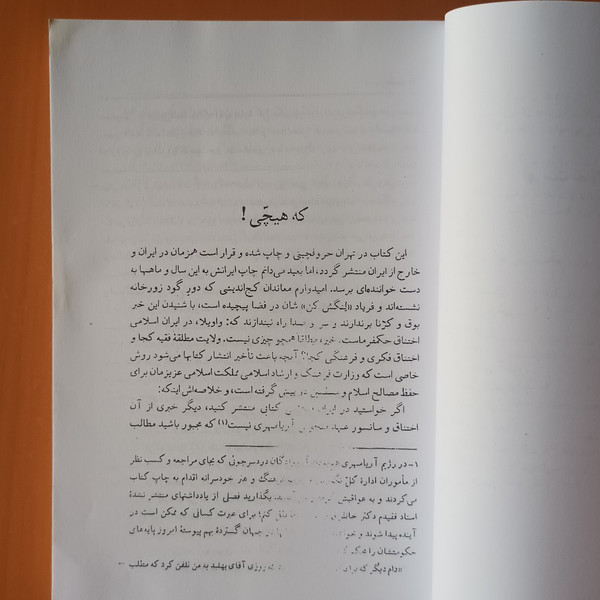 که هیچّی !
این کتاب در تهران حروفچینی و چاپ شده و قرار است همزمان در ایران و
خارج از ایران منتشر گردد، اما بعید می‌دانم چاپ ایرانش به این سال و ماهها به
دست خواننده‌ای برسد. امیدوارم معاندان کج‌اندیشی که دور گود زورخانه
نشسته‌اند و فریاد «لِنگش کن» شان در فضا پیچیده است، با شنیدن این خبر
بوق و کرّنا برندارند و سر و صدا راه نیندازند که: واویلا، در ایران اسلامی
اختناق حکمفرماست. خیر، مطلقا همچو چیزی نیست. ولایت مطلقهٔ فقیه کجا و
اختناق فکری و فرهنگی کجا؟ آنچه باعث تأخیر انتشار کتابها می‌شود روش
خاصی است که وزارت فرهنگ و ارشاد اسلامی مملکت اسلامی عزیزمان برای
حفظ مصالح اسلام و مسلمین در پیش گرفته است، و خلاصه‌اش اینکه:
اگر خواستید در ایران کتابی منتشر کنید، دیگر خبری از آن
اختناق و سانسور عهد آریامهری نیست(۱) که مجبور باشید مطالب
۱- در رژیم آریامهری دردسرجوئی که بجای مراجعه و کسب نظر
از مأموران ادارهٔ کلّ فرهنگ و هنر خودسرانه اقدام به چاپ کتاب
می‌کردند و به عواقبش بگذارید فصلی از یادداشتهای منتشر نشدهٔ
استاد فقیدم دکتر کنم؛ برای عبرت کسانی که ممکن است در
آینده پیدا شوند و جهان گستردهٔ بهم پیوستهٔ امروز پایه‌های
حکومتشان را
«دام دیگر که برای روزی آقای پهلبد به من تلفن کرد که مطلب ←